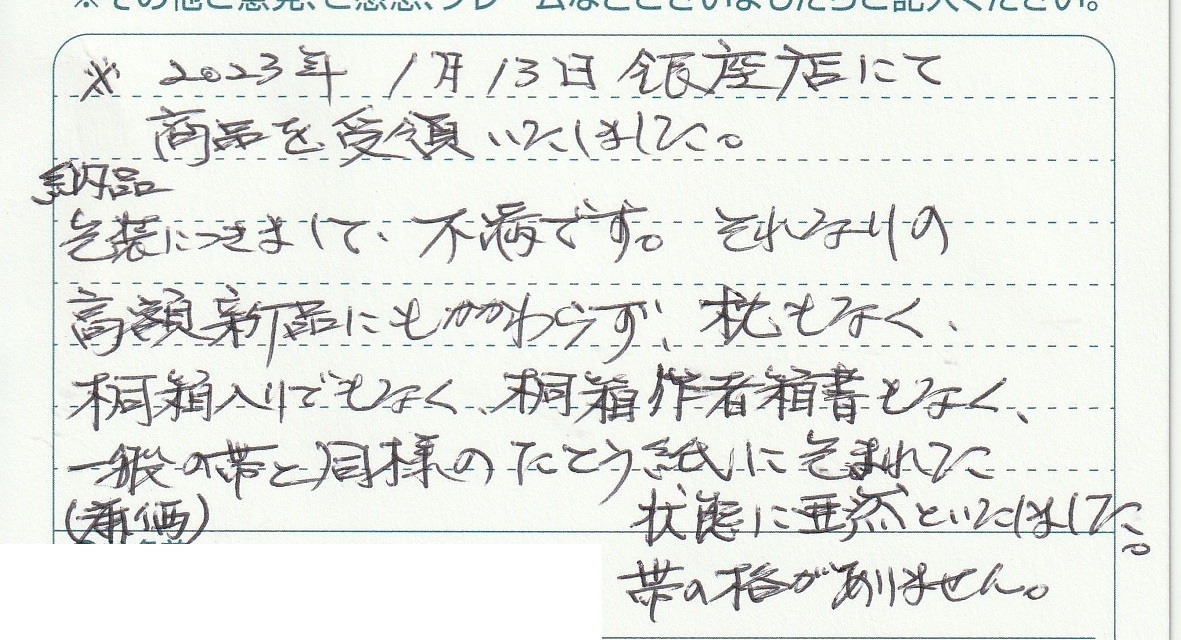 ※その他ご意見、ご感想、クレームなどございましたらご記入ください。
※ 2023年 1月13日 銀座店にて
商品を受領いたしました。
納品
包装につきまして、不満です。それなりの
高額新品にもかかわらず、枕もなく、
桐箱入りでもなく、桐箱作者箱書もなく、
一般の帯と同様のたとう紙に包まれた
(廉価)
状態に亜然といたしました。
帯の格がありません。